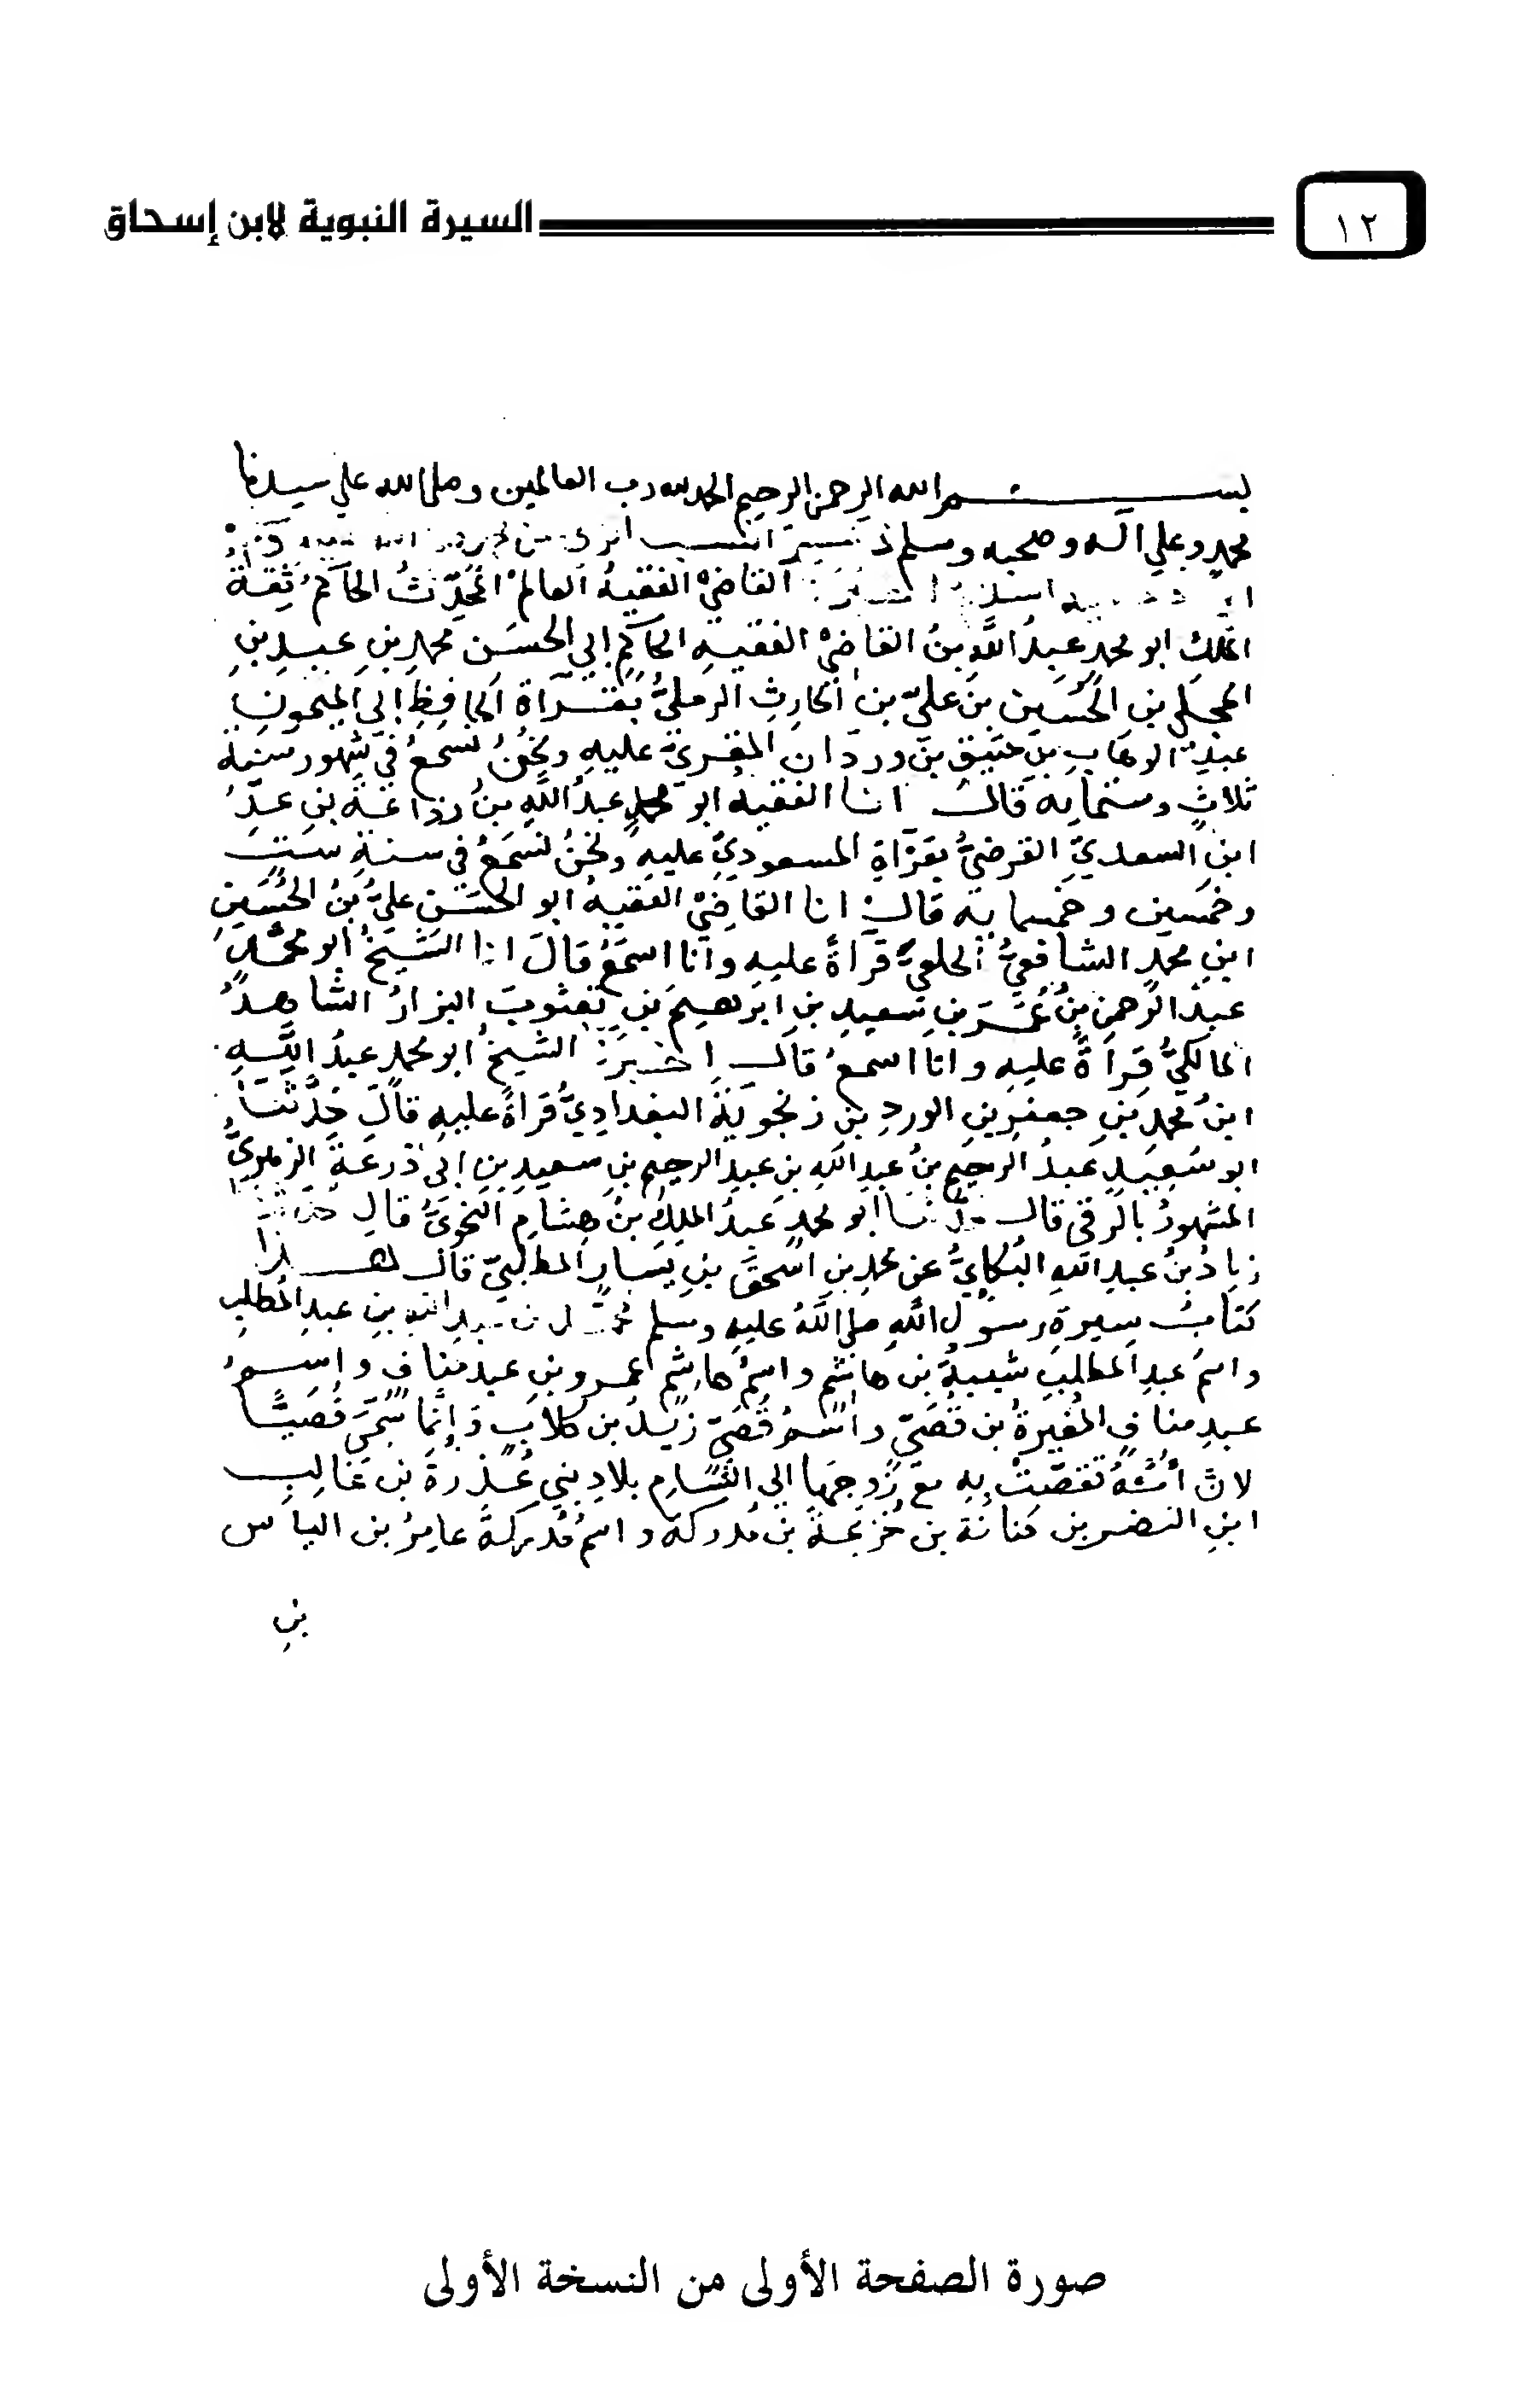 ١٢
السيرة النبوية لابن إسحاق
بسم الله الرحمن الرحيم الحمد لله رب العالمين وصلى الله علي سيدنا
محمد وعلي آله وصحبه وسلم
القاضي الفقيه العالم المحدث الحاكم ثقة
الملك ابو محمد عبد الله بن القاضي الفقيه الحاكم ابي الحسن محمد بن عبيد بن
المجلي بن الحسين بن علي بن الحارث الرملي بقراة الحافظ ابي الميمون
عبد الوهاب بن عتيق بن وردان المقري عليه ونحن نسمع في شهور سنة
ثلاث وستمايه قال انا الفقيه ابو محمد عبد الله بن رفاعة بن غدير
ابن السعدي الفرضي بقراة المسعودي عليه ونحن نسمع في سنة ست
وخمسين وخمسمايه قال انا القاضي الفقيه ابو الحسن علي بن الحسين
ابن محمد الشافعي الخلعي قراة عليه وانا اسمع قال انا الشيخ ابو محمد
عبد الرحمن بن عمر بن سعيد بن ابرهيم بن البزار الشاهد
المالكي قراة عليه وانا اسمع قال اخبرنا الشيخ ابو محمد عبد الله
ابن محمد بن جعفر بن الورد بن زنجوية البغدادي قراة عليه قال حدثنا
ابو سعيد عبد الرحيم بن عبد الله بن عبد الرحيم بن سعيد بن ابي ذرعة الزهري
المشهور بالرقي قال حدثنا ابو محمد عبد الملك بن هشام النحوي قال حدثنا
زياد بن عبد الله البكاي عن محمد بن اسحق بن يسار المطلبي قال هذا
كتاب سيرة رسول الله صلى الله عليه وسلم بن عبد الله بن عبد المطلب
واسم عبد المطلب شيبة بن هاشم واسم هاشم عمرو بن عبد مناف واسم
عبد مناف المغيرة بن قصي واسم قصي زيد بن كلاب وإنما سمي قصيا
لان أمه تقصت به مع زوجها الي الشام بلاد بني عذرة بن غالب
ابن النضر بن كنانة بن خزيمة بن مدركة واسم مدركة عامر بن الياس
بن
صورة الصفحة الأولى من النسخة الأولى